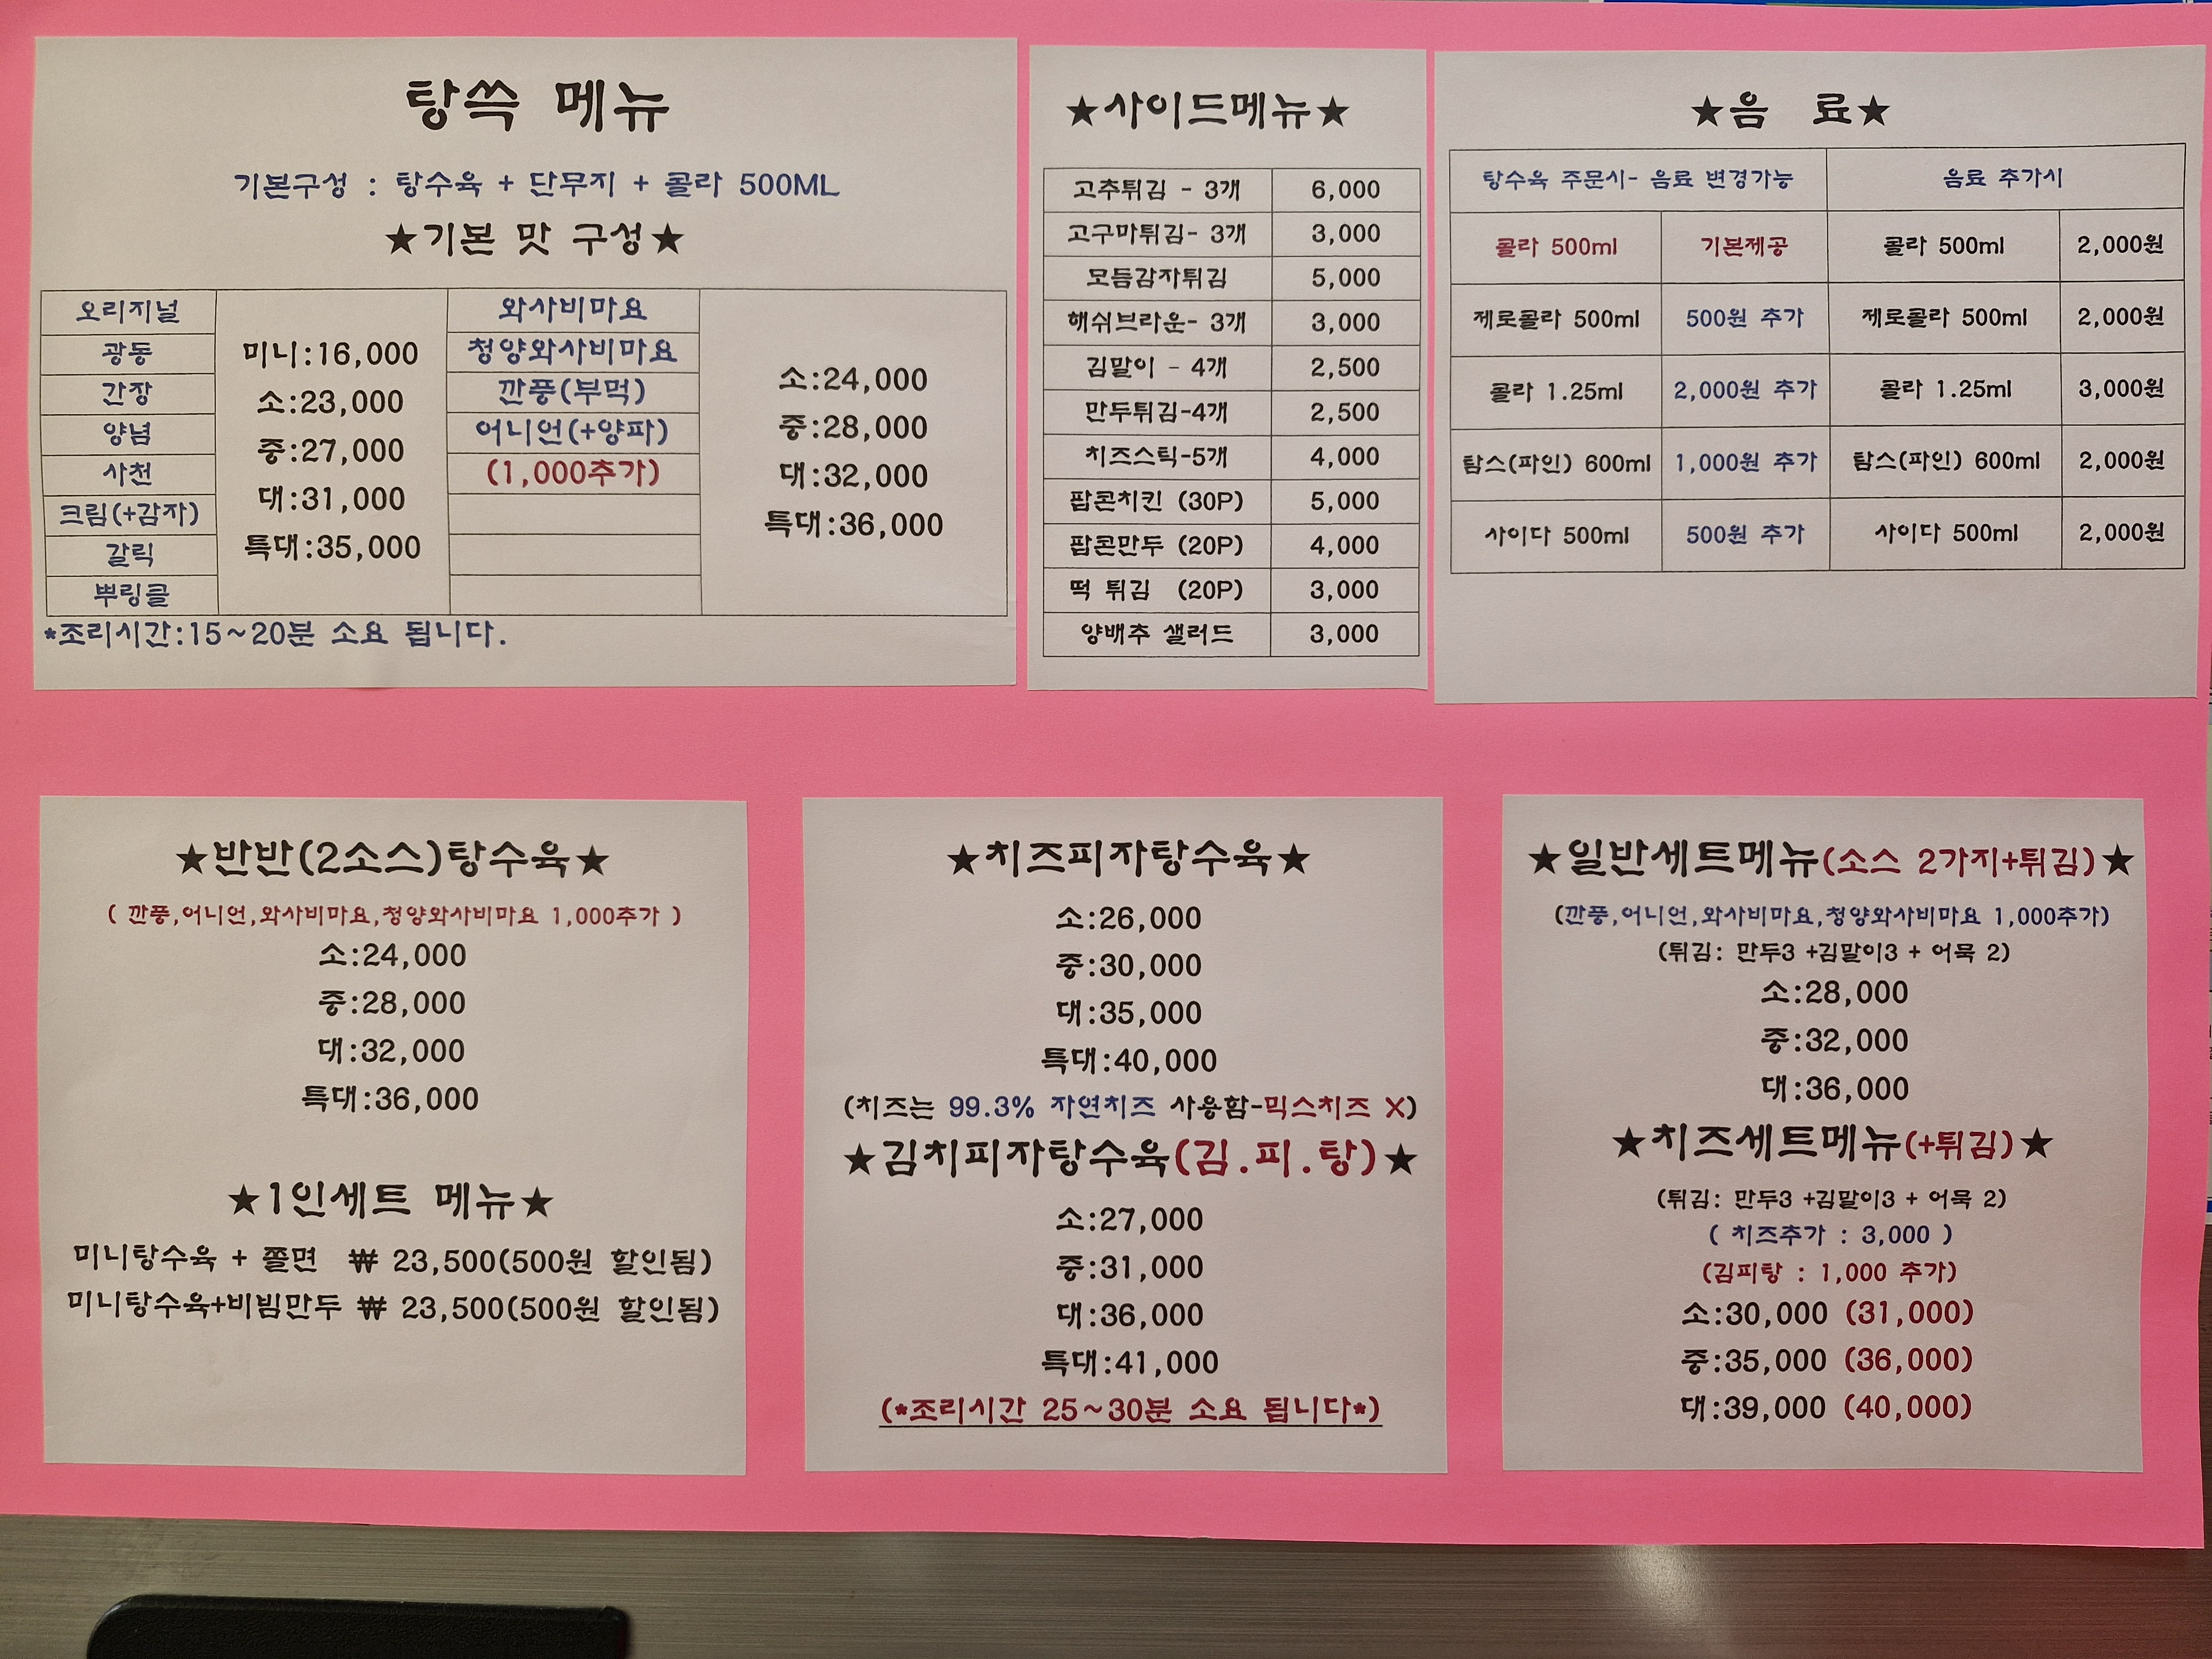 탕쓱 메뉴
기본구성 : 탕수육 + 단무지 + 콜라 500ML
★기본 맛 구성★
오리지널
광동
간장
양념
사천
크림(+감자)
갈릭
뿌링클
미니:16,000
소:23,000
중:27,000
대:31,000
특대:35,000
와사비마요
청양와사비마요
깐풍(부먹)
어니언(+양파)
(1,000추가)
소:24,000
중:28,000
대:32,000
특대:36,000
*조리시간:15~20분 소요 됩니다.
★사이드메뉴★
고추튀김 - 3개 6,000
고구마튀김- 3개 3,000
모듬감자튀김 5,000
해쉬브라운- 3개 3,000
김말이 - 4개 2,500
만두튀김-4개 2,500
치즈스틱-5개 4,000
팝콘치킨 (30P) 5,000
팝콘만두 (20P) 4,000
떡 튀김 (20P) 3,000
양배추 샐러드 3,000
★음 료★
탕수육 주문시- 음료 변경가능 음료 추가시
콜라 500ml 기본제공 콜라 500ml 2,000원
제로콜라 500ml 500원 추가 제로콜라 500ml 2,000원
콜라 1.25ml 2,000원 추가 콜라 1.25ml 3,000원
탐스(파인) 600ml 1,000원 추가 탐스(파인) 600ml 2,000원
사이다 500ml 500원 추가 사이다 500ml 2,000원
★반반(2소스)탕수육★
( 깐풍,어니언,와사비마요,청양와사비마요 1,000추가 )
소:24,000
중:28,000
대:32,000
특대:36,000
★1인세트 메뉴★
미니탕수육 + 쫄면 ₩ 23,500(500원 할인됨)
미니탕수육+비빔만두 ₩ 23,500(500원 할인됨)
★치즈피자탕수육★
소:26,000
중:30,000
대:35,000
특대:40,000
(치즈는 99.3% 자연치즈 사용함-믹스치즈 X)
★김치피자탕수육(김.피.탕)★
소:27,000
중:31,000
대:36,000
특대:41,000
(*조리시간 25~30분 소요 됩니다*)
★일반세트메뉴(소스 2가지+튀김)★
(깐풍,어니언,와사비마요,청양와사비마요 1,000추가)
(튀김: 만두3 +김말이3 + 어묵 2)
소:28,000
중:32,000
대:36,000
★치즈세트메뉴(+튀김)★
(튀김: 만두3 +김말이3 + 어묵 2)
( 치즈추가 : 3,000 )
(김피탕 : 1,000 추가)
소:30,000 (31,000)
중:35,000 (36,000)
대:39,000 (40,000)